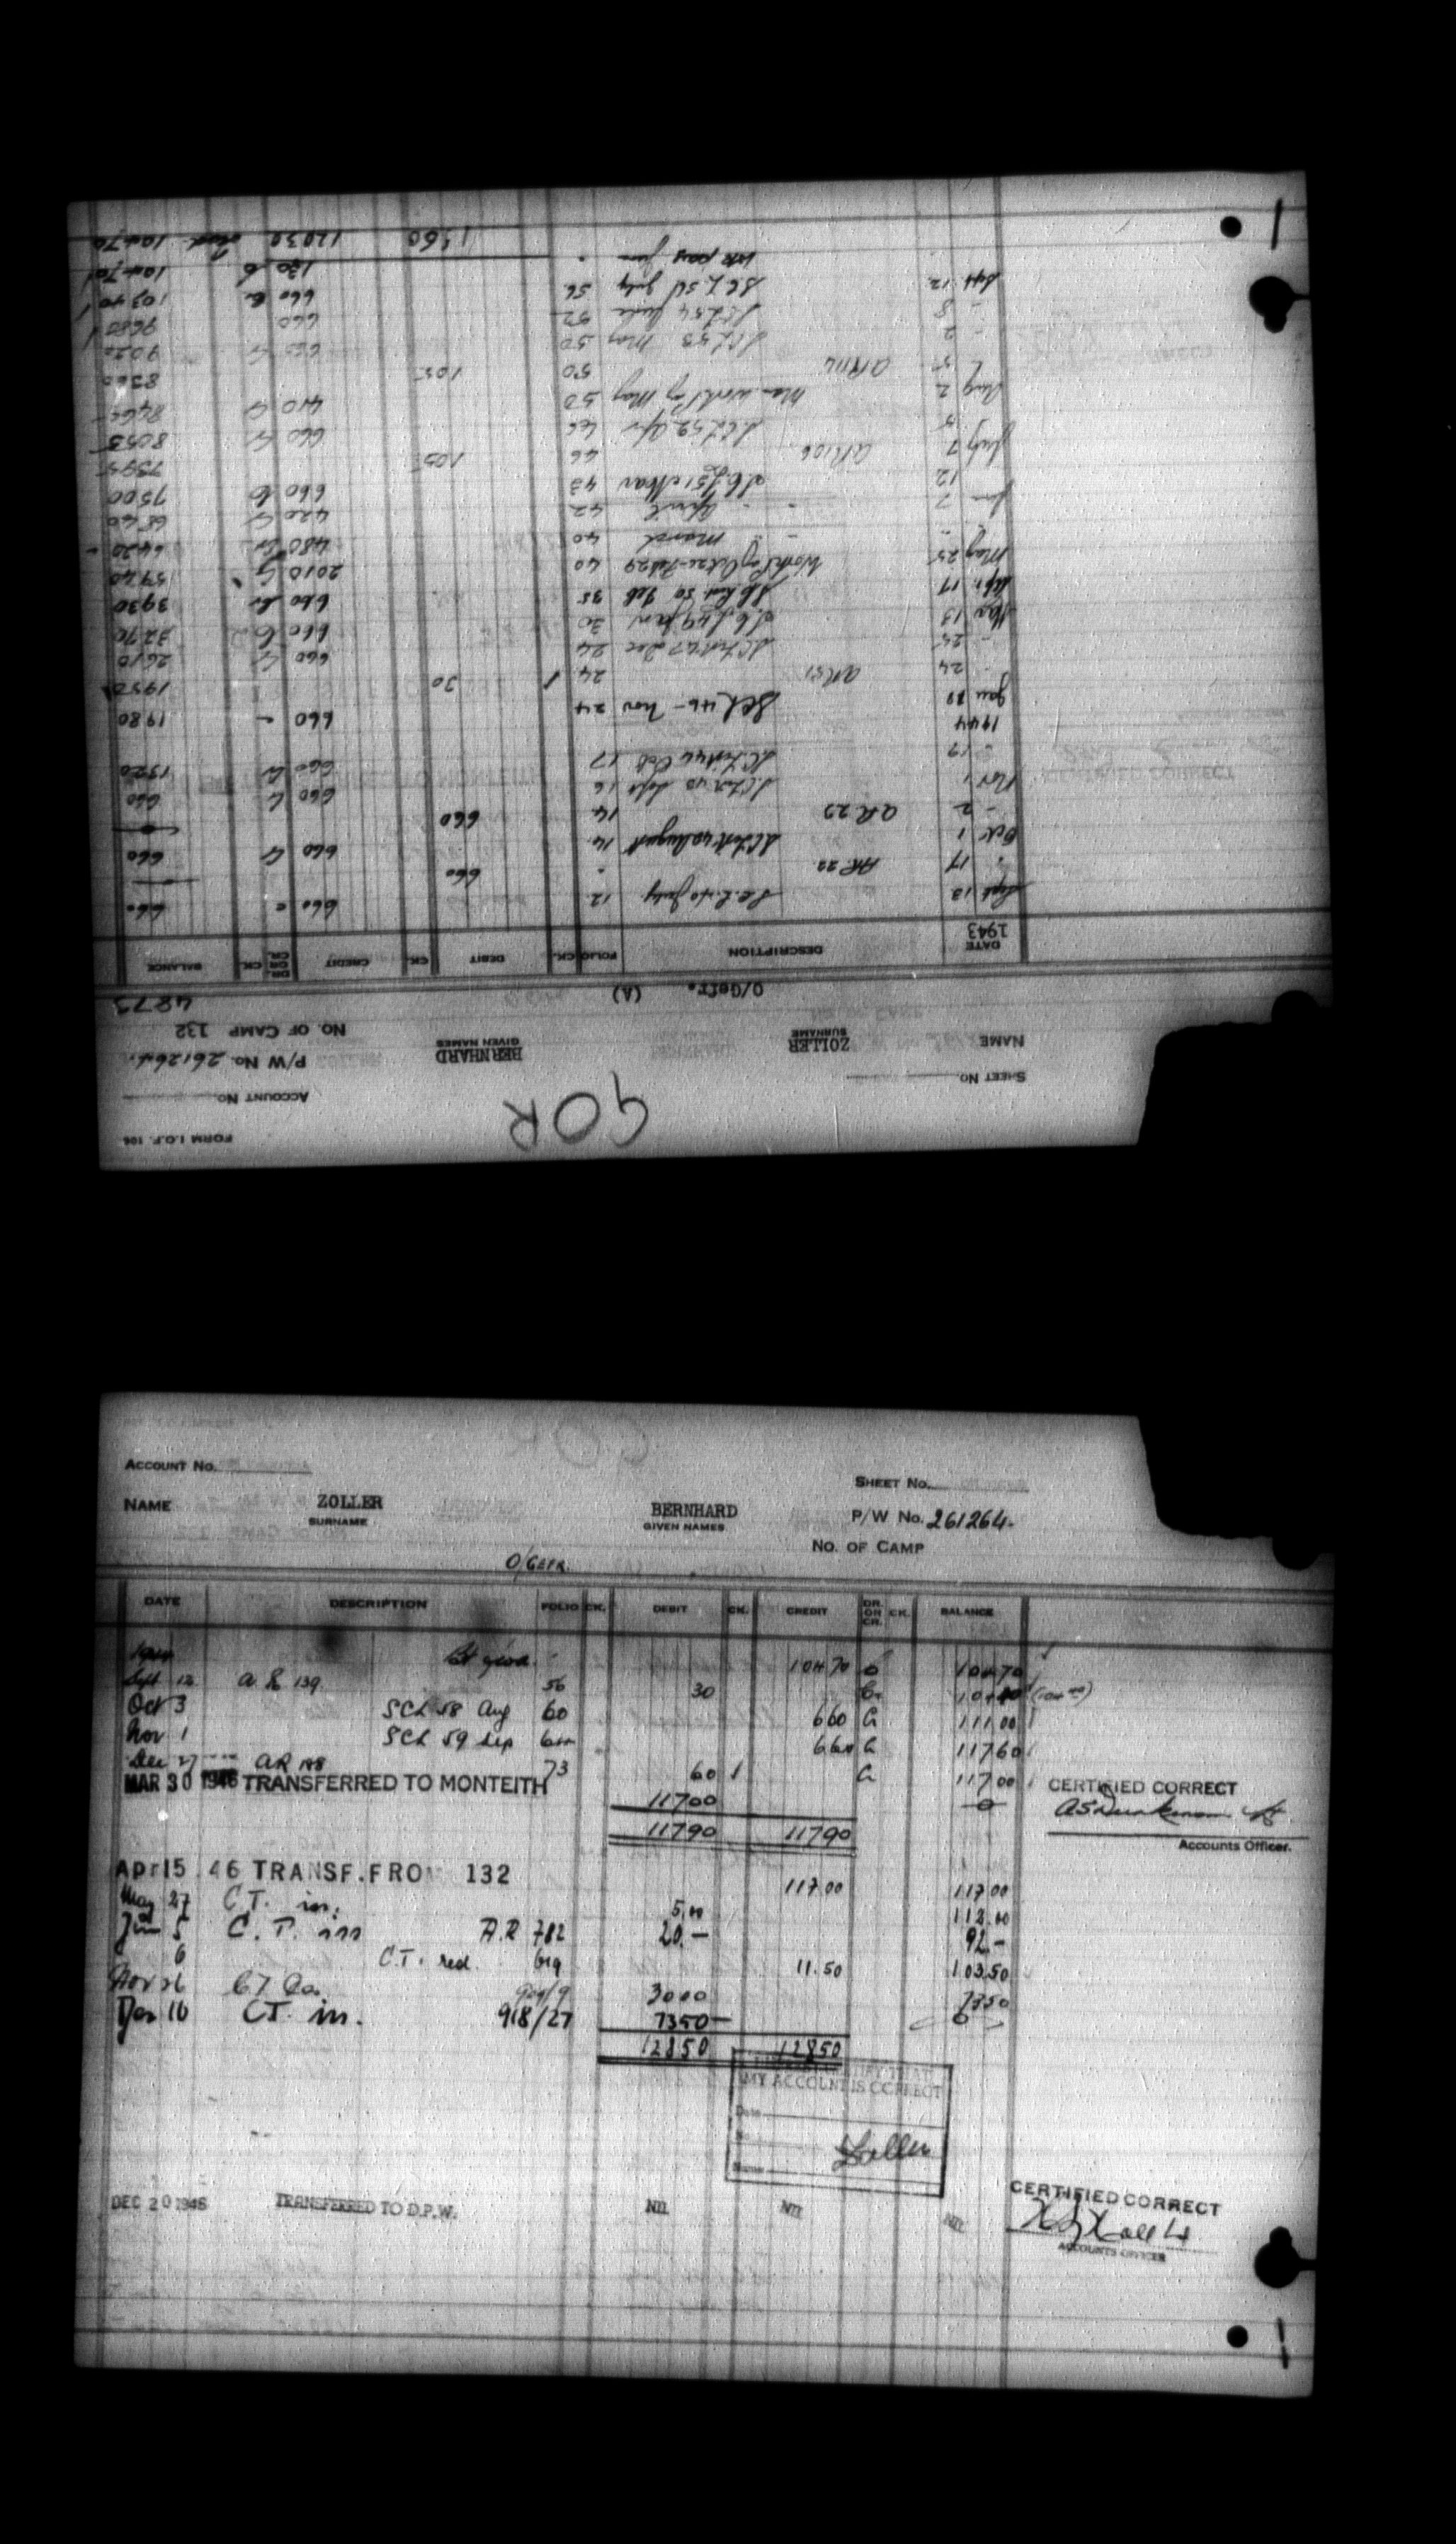 FORM I.O.F. 106
GOR
ACCOUNT No.
SHEET No.
P/W No. 261264.
NAME ZOLLER BERNHARD
SURNAME GIVEN NAMES
NO. OF CAMP 132
O/Gefr. (A)
4873
DATE DESCRIPTION FOLIO CK. DEBIT CK. CREDIT DR. OR CR. CK. BALANCE
1943
Sept 13 S.C.L. 40 July 12 660 c 660
" 17 AR 22 " 660
Oct 1 August 14 660 Cr 660
- 2 AR 29 14 660
Nov 1 Sept 16 660 660
17 Oct 17 660 1320
1944
Jan SCL 46 - Nov 24 660 - 1980
24 AR 51 24 30 1950
25 Dec 24 660 2610
Mar 13 49 Jan 30 660 3270
Apr 17 50 Feb 35 660 Cr 3930
May 25 Work Pay Oct 26-Feb 29 40 2010 5940
- " March 40 480 Cr 6420
Jun 7 - " April 42 420 6840
12 51 Mar 43 660 7500
July 7 AR 106 46 105 7395
5 52 Apr 46 660 8055
Aug 2 Man work Pay May 50 410 8465
50 105 8360
- 2 SCL 53 May 50 660 9020
- 8 SCL 54 June 52 660 9680
Sept 12 SCL 56 July 56 660 Cr 10340
WK pay June " 130 10470
1560 12030 10470
ACCOUNT No.
SHEET No.
NAME ZOLLER BERNHARD
SURNAME GIVEN NAMES
P/W No. 261264.
NO. OF CAMP
O/GEFR.
DATE DESCRIPTION FOLIO CK. DEBIT CK. CREDIT DR. OR CR. CK. BALANCE
1944 10470 10470
Sept 12 A R 139 56 30 Cr 10440
Oct 3 SCL 58 Aug 60 660 Cr 11100
Nov 1 SCL 59 Sep 660 11760
Dec 27 AR 73 60 11700
MAR 30 1946 TRANSFERRED TO MONTEITH 11700 0
CERTIFIED CORRECT
Accounts Officer.
11790 11790
Apr 15 46 TRANSF. FROM 132 117.00 117.00
May 27 C.T. in. 5.00 112.00
Jun 5 C.T. in A.R 782 20.- 92.-
6 C.T. red. 11.50 103.50
Nov 26 C.T. 3000 7350
Dec 10 C.T. in. 918/27 7350 0
12850 12850
CERTIFY THAT
MY ACCOUNT IS CORRECT
Date
No.
Name
Zoller
DEC 20 1946 TRANSFERRED TO D.P.W. NIL NIL NIL
CERTIFIED CORRECT
ACCOUNTS OFFICER